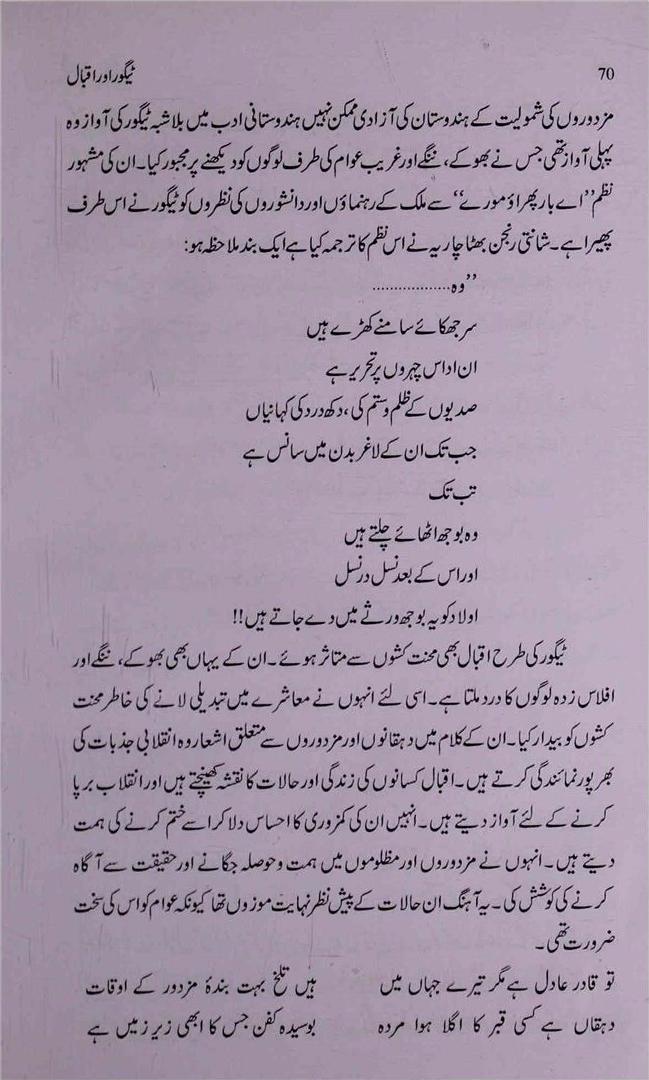 70
ٹیگور اور اقبال
مزدوروں کی شمولیت کے ہندوستان کی آزادی ممکن نہیں ہندوستانی ادب میں بلا شبہ ٹیگور کی آواز وہ
پہلی آواز تھی جس نے بھوکے، ننگے اور غریب عوام کی طرف لوگوں کو دیکھنے پر مجبور کیا۔ ان کی مشہور
نظم ”اے بار پھر اؤ مورے“ سے ملک کے رہنماؤں اور دانشوروں کی نظروں کو ٹیگور نے اس طرف
پھیرا ہے۔ شانتی رنجن بھٹا چاریہ نے اس نظم کا ترجمہ کیا ہے ایک بند ملاحظہ ہو:
”وہ..................
سر جھکائے سامنے کھڑے ہیں
ان اداس چہروں پر تحریر ہے
صدیوں کے ظلم و ستم کی، دکھ درد کی کہانیاں
جب تک ان کے لاغر بدن میں سانس ہے
تب تک
وہ بوجھ اٹھائے چلتے ہیں
اور اس کے بعد نسل در نسل
اولاد کو یہ بوجھ ورثے میں دے جاتے ہیں!!
ٹیگور کی طرح اقبال بھی محنت کشوں سے متاثر ہوئے۔ ان کے یہاں بھی بھوکے، ننگے اور
افلاس زدہ لوگوں کا درد ملتا ہے۔ اسی لئے انہوں نے معاشرے میں تبدیلی لانے کی خاطر محنت
کشوں کو بیدار کیا۔ ان کے کلام میں دہقانوں اور مزدوروں سے متعلق اشعار وہ انقلابی جذبات کی
بھرپور نمائندگی کرتے ہیں۔ اقبال کسانوں کی زندگی اور حالات کا نقشہ کھینچتے ہیں اور انقلاب برپا
کرنے کے لئے آواز دیتے ہیں۔ انہیں ان کی کمزوری کا احساس دلا کر اسے ختم کرنے کی ہمت
دیتے ہیں۔ انہوں نے مزدوروں اور مظلوموں میں ہمت و حوصلہ جگانے اور حقیقت سے آگاہ
کرنے کی کوشش کی۔ یہ آہنگ ان حالات کے پیش نظر نہایت موزوں تھا کیونکہ عوام کو اس کی سخت
ضرورت تھی۔
تو قادر عادل ہے مگر تیرے جہاں میں ہیں تلخ بہت بندۂ مزدور کے اوقات
دہقاں ہے کسی قبر کا اگلا ہوا مردہ بوسیدہ کفن جس کا ابھی زیر زمیں ہے